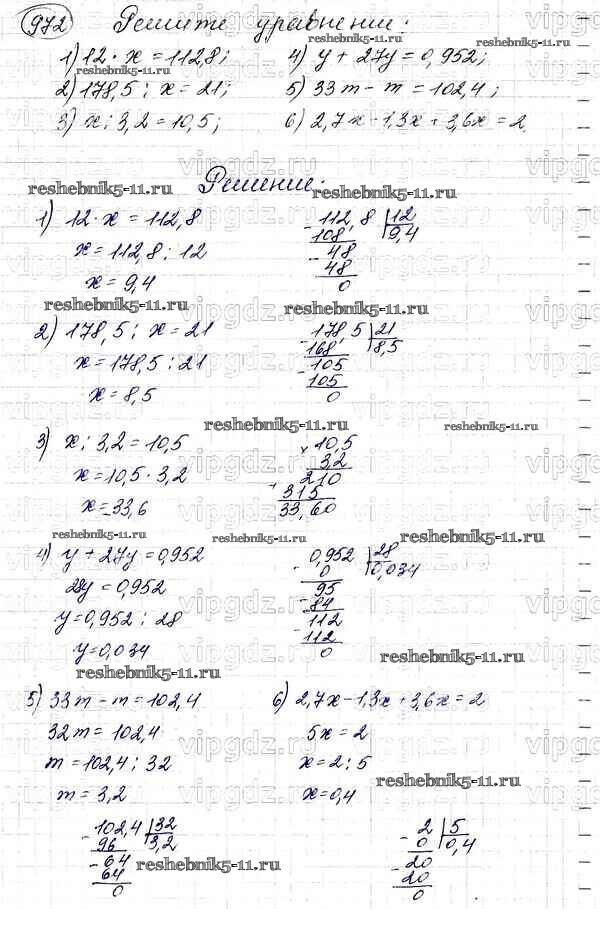 972 Решите уравнении:
1) 12 · x = 112,8; 4) y + 27y = 0,952;
reshebnik5-11.ru reshebnik5-11.ru
2) 178,5 : x = 21; 5) 33m - m = 102,4;
3) x : 3,2 = 10,5; 6) 2,7x - 1,3x + 3,6x = 2
vipgdz.ru
Решение:
reshebnik5-11.ru reshebnik5-11.ru
1) 12 · x = 112,8 112,8 | 12
x = 112,8 : 12 108 9,4
48
x = 9,4 48
0
reshebnik5-11.ru reshebnik5-11.ru
2) 178,5 : x = 21 178,5 | 21
x = 178,5 : 21 168 8,5
105
x = 8,5 105
0
reshebnik5-11.ru reshebnik5-11.ru
3) x : 3,2 = 10,5 × 10,5
x = 10,5 · 3,2 3,2
210
+ 315
x = 33,6 33,60
reshebnik5-11.ru reshebnik5-11.ru reshebnik5-11.ru
4) y + 27y = 0,952 0,952 | 28
28y = 0,952 0 0,034
95
y = 0,952 : 28 84
112
y = 0,034 112
0
reshebnik5-11.ru reshebnik5-11.ru
5) 33m - m = 102,4 6) 2,7x - 1,3x + 3,6x = 2
32m = 102,4 5x = 2
m = 102,4 : 32 x = 2 : 5
reshebnik5-11.ru
m = 3,2 x = 0,4
102,4 | 32 2 | 5
96 3,2 0 0,4
64 20
64 20
0 0
reshebnik5-11.ru